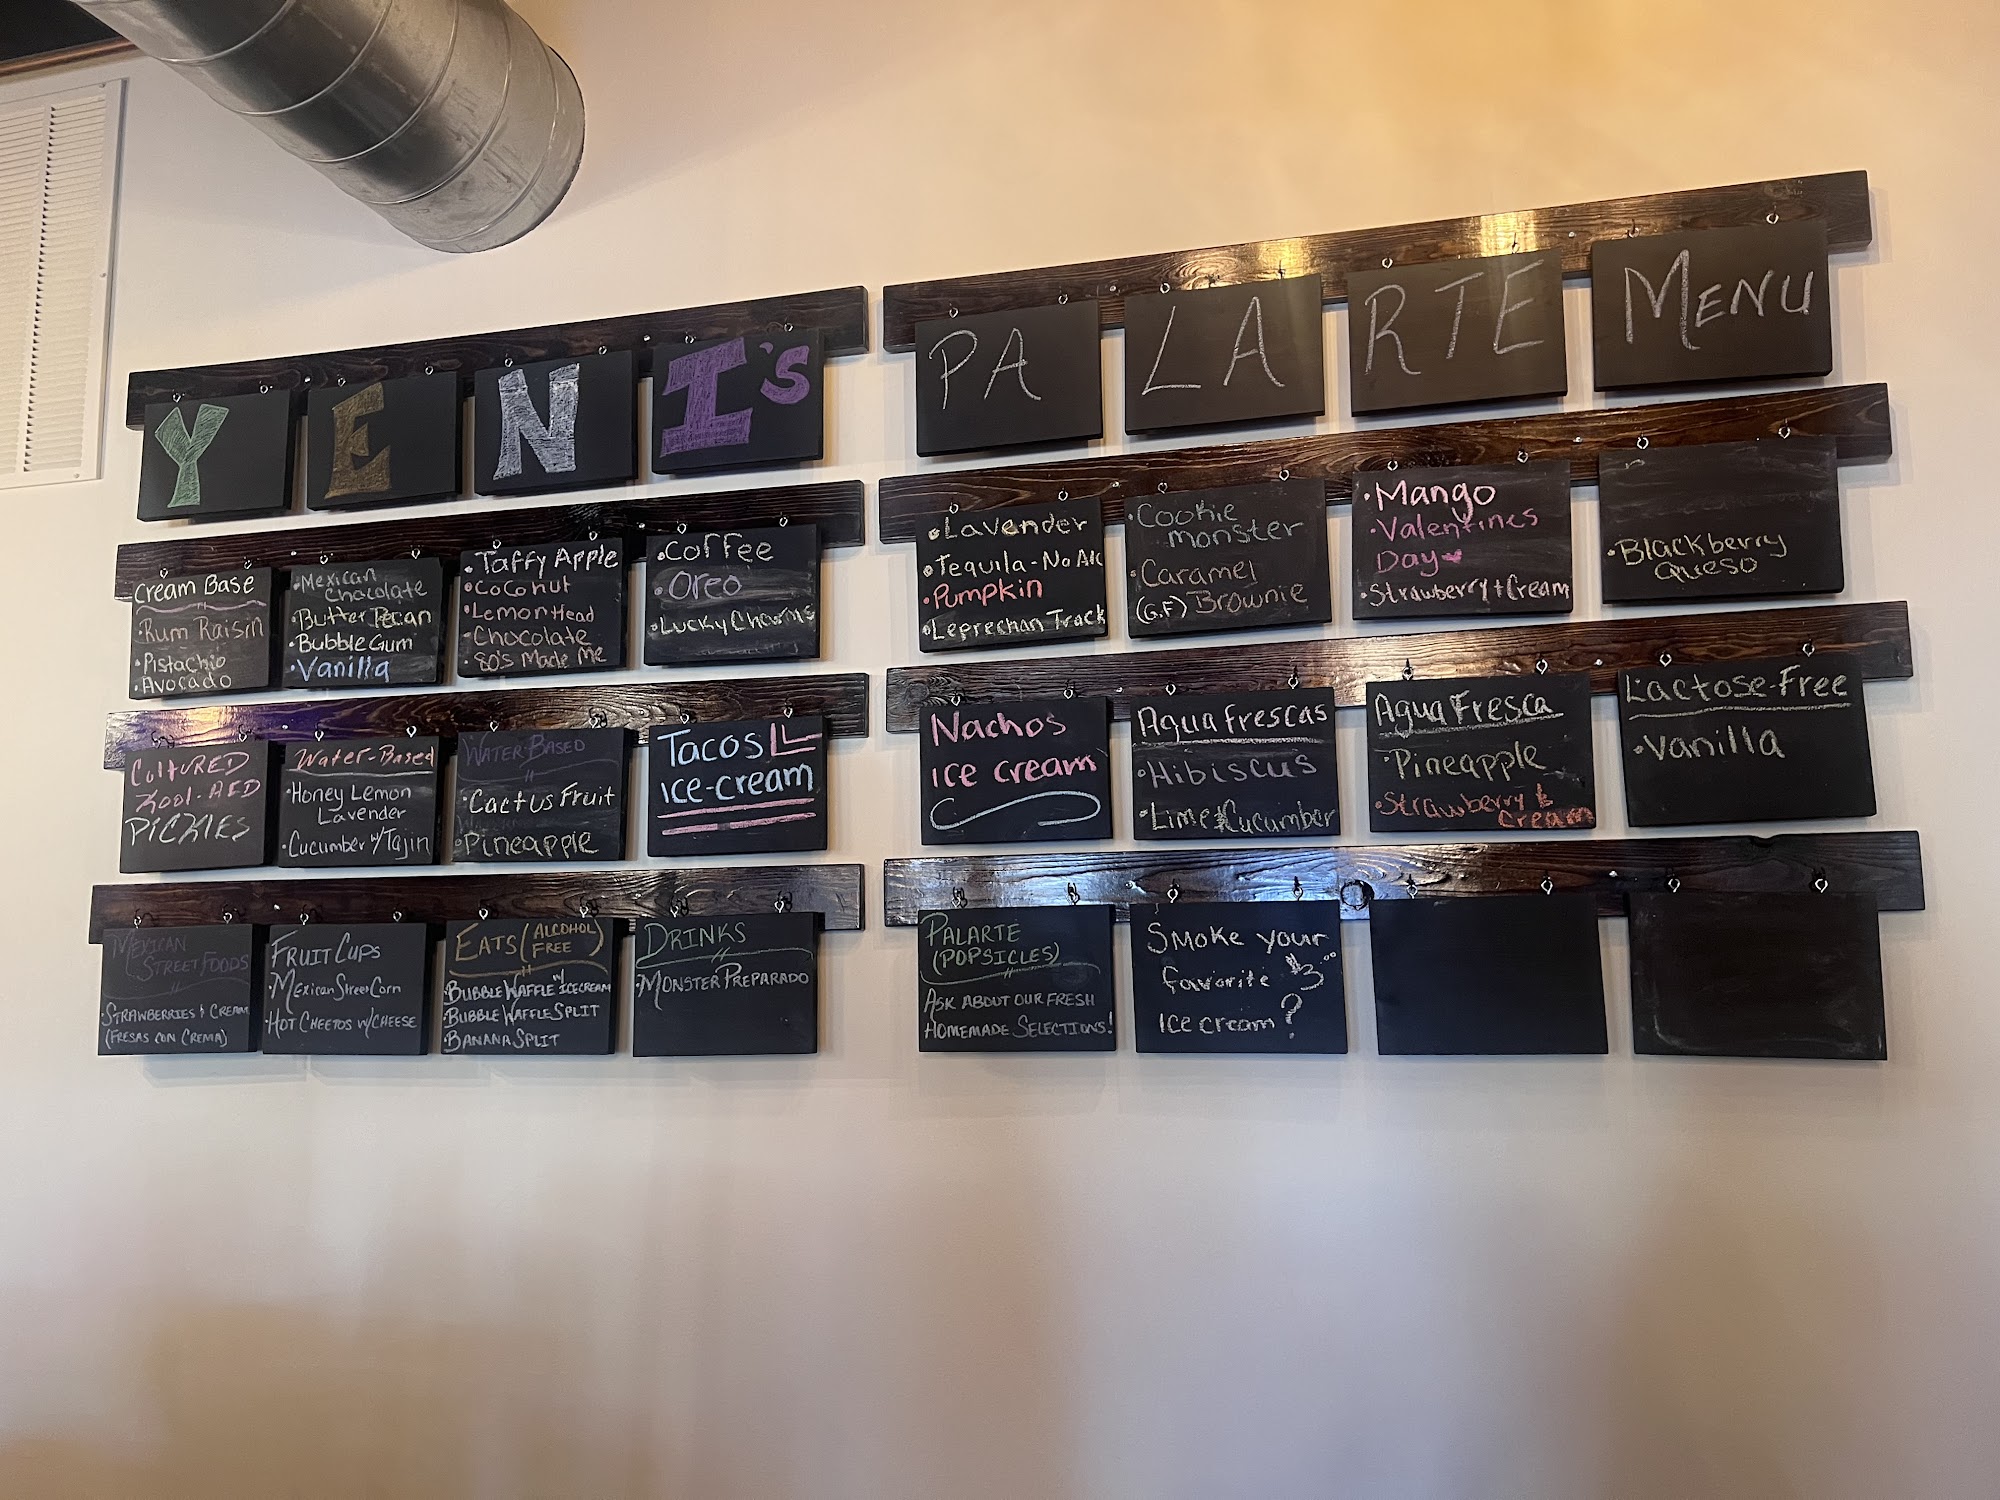 YENI's
PALARTE MENU
Cream Base
•Rum Raisin
•Pistachio
•Avocado
•Mexican
Chocolate
•Butter Pecan
•Bubble Gum
•Vanilla
•Taffy Apple
•Coconut
•Lemonhead
•Chocolate
•80's Made Me
•Coffee
•Oreo
•Lucky Charms
•Lavender
•Tequila-No Alc
•Pumpkin
•Leprechan Track
•Cookie
monster
•Caramel
(G.F) Brownie
•Mango
•Valentines
Day
•Strawberry + Cream
•Blackberry
Queso
CULTURED
KOOL-AED
PICKLES
Water-Based
•Honey Lemon
Lavender
•Cucumber w/Tajin
WATER-BASED
•Cactus Fruit
•Pineapple
Tacos
ice-cream
Nachos
ice cream
Agua frescas
•Hibiscus
•Lime & Cucumber
Agua Fresca
•Pineapple
•Strawberry &
cream
Lactose-Free
•Vanilla
MEXICAN
STREET FOODS
•STRAWBERRIES & CREAM
(FRESAS CON CREMA)
FRUIT CUPS
•MEXICAN STREET CORN
•HOT CHEETOS W/CHEESE
EATS (ALCOHOL
FREE)
•BUBBLE WAFFLE W/ ICECREAM
•BUBBLE WAFFLE SPLIT
•BANANA SPLIT
DRINKS
•MONSTER PREPARADO
PALARTE
(POPSICLES)
ASK ABOUT OUR FRESH
HOMEMADE SELECTIONS!
Smoke your
favorite $3
ice cream?